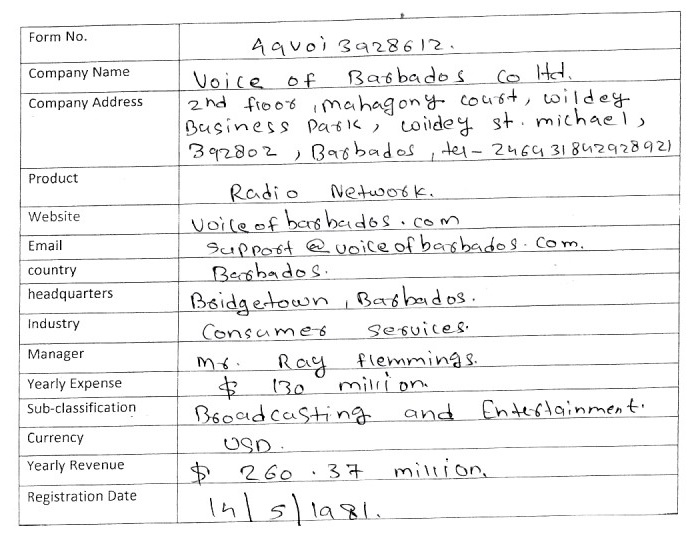 Form No. Aqvoi3928612.
Company Name Voice of Barbados Co ltd.
Company Address 2nd floor, mahagony court, wildey
Business Park, wildey st. michael,
392802, Barbados, tel- 246431842928921
Product Radio Network.
Website Voiceofbarbados.com
Email Support@voiceofbarbados.com.
country Barbados.
headquarters Bridgetown, Barbados.
Industry Consumer Services.
Manager Mr. Ray flemmings.
Yearly Expense $ 130 million
Sub-classification Broadcasting and Entertainment.
Currency USD.
Yearly Revenue $ 260.37 million.
Registration Date 14/5/1981.